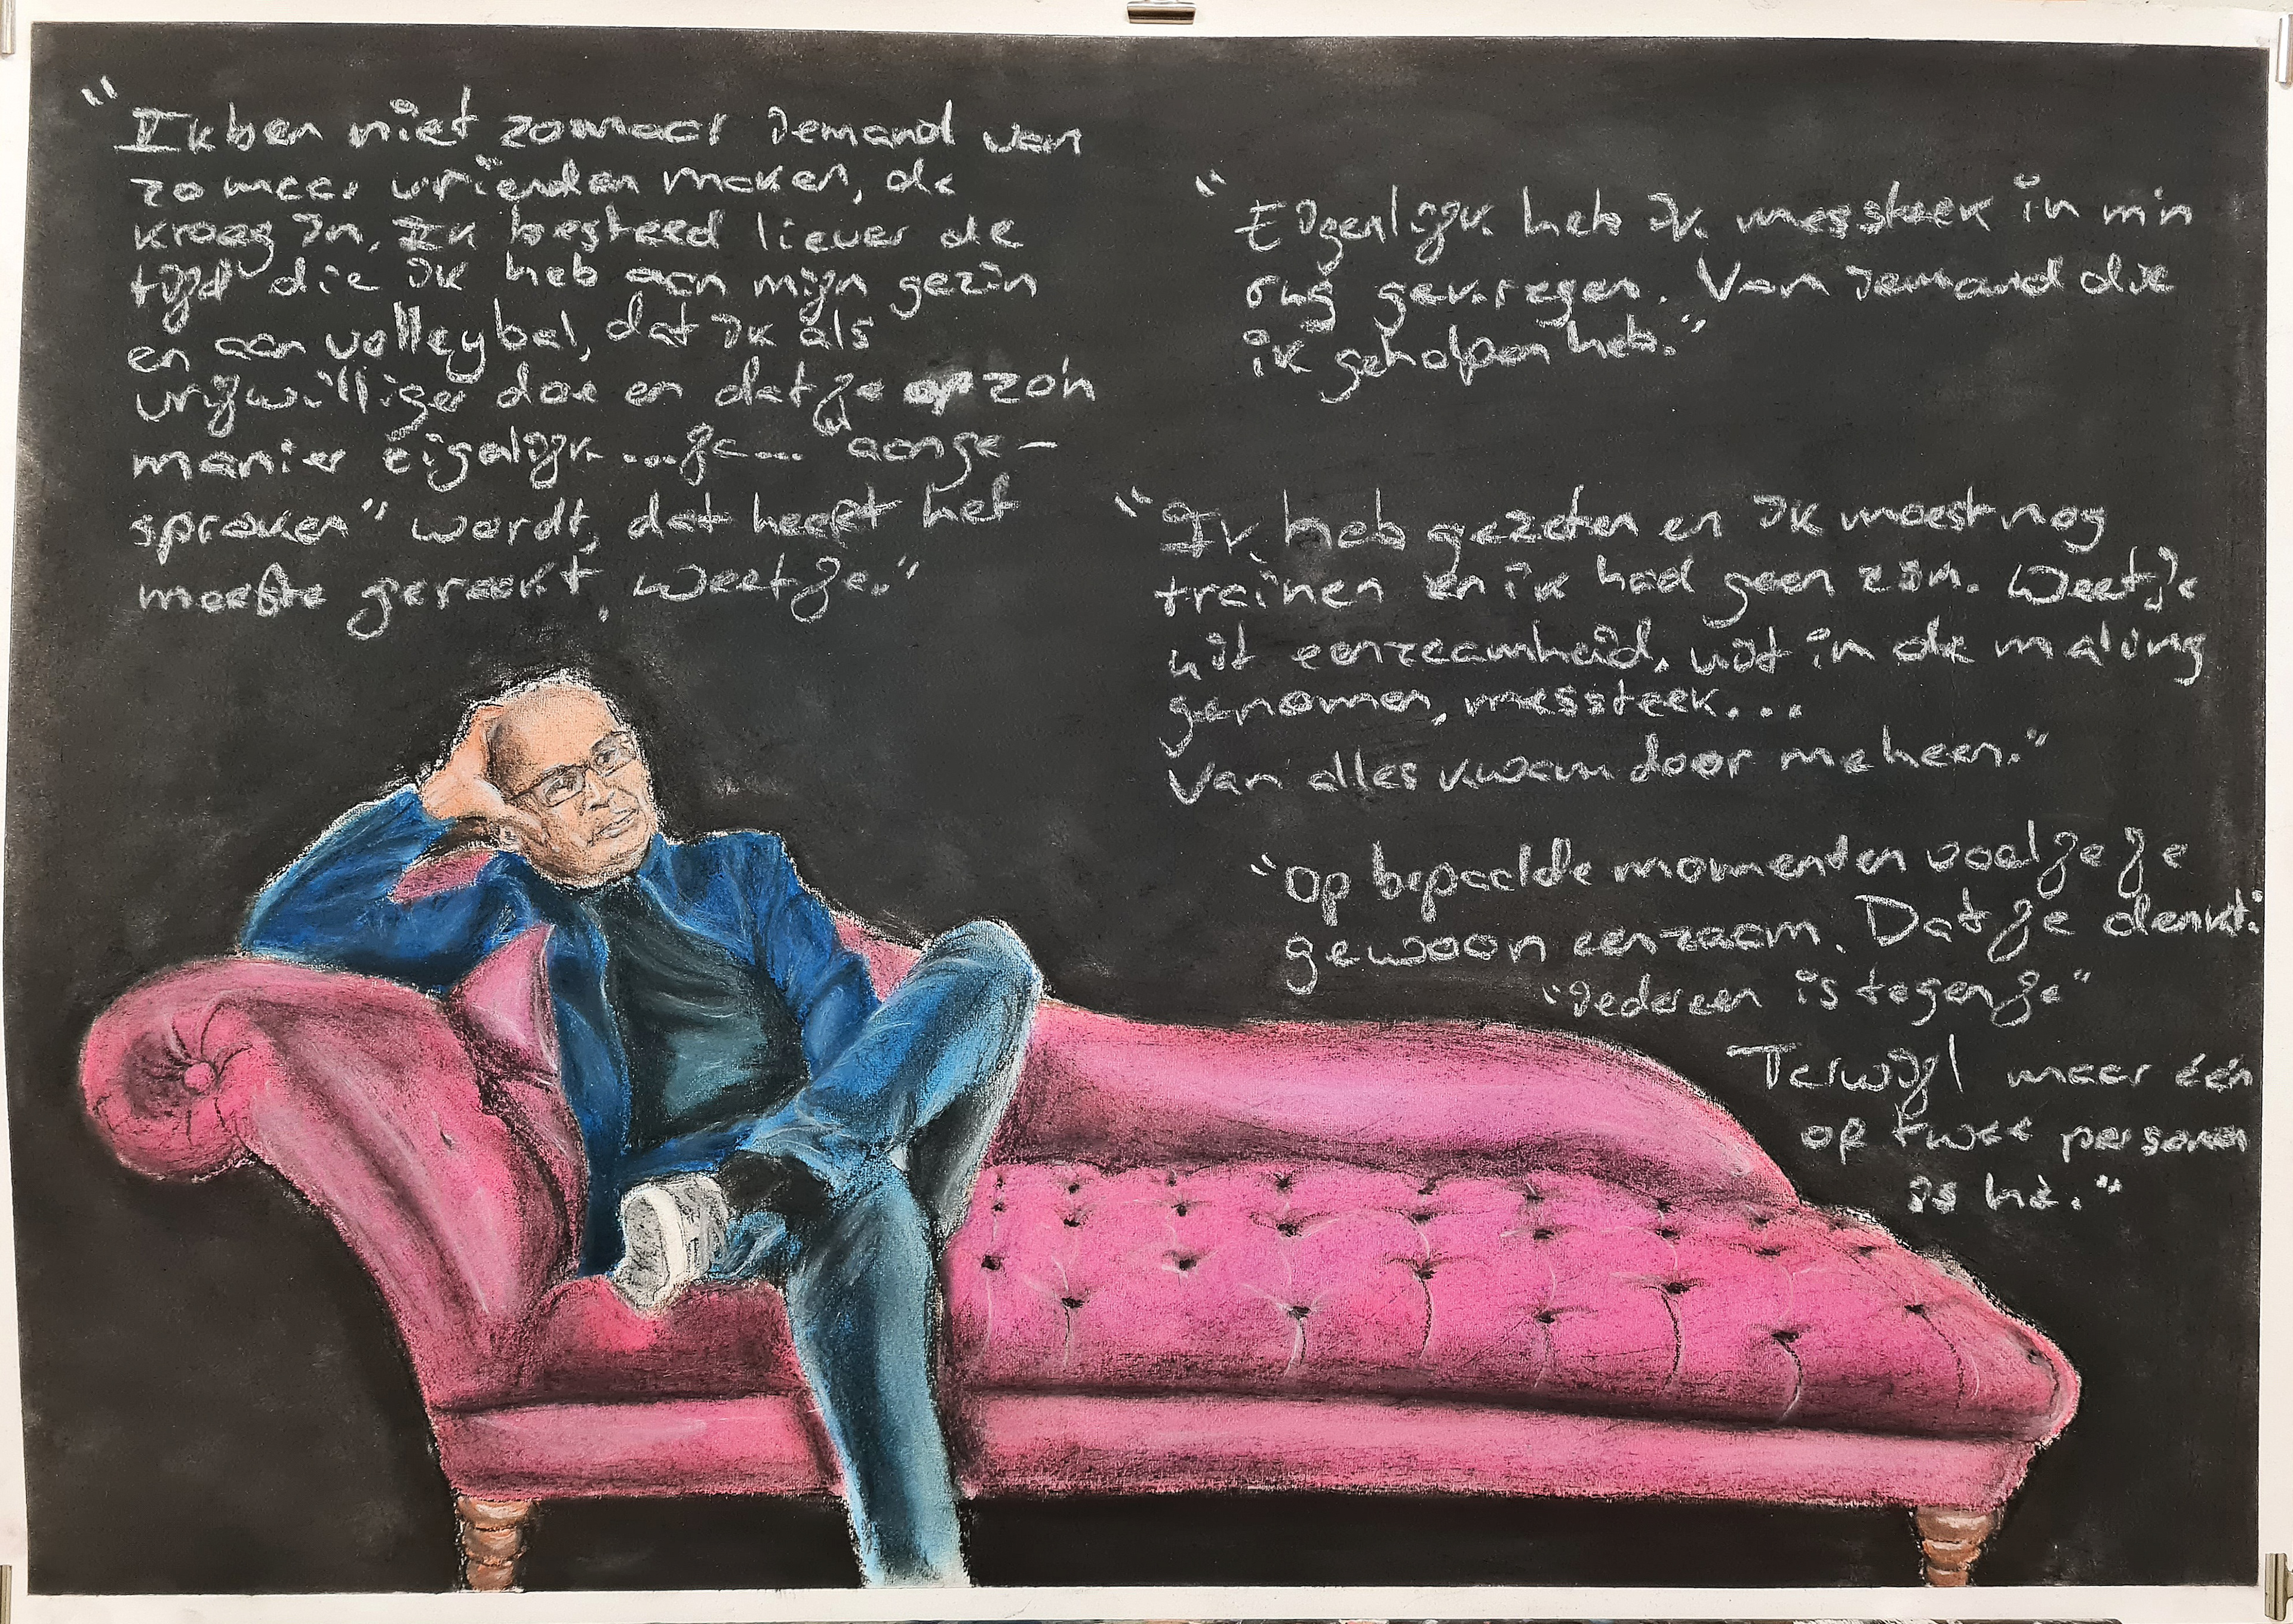 "Ik ben niet zomaar iemand van
zomaar vrienden maken, de
kroeg in. Ik besteed liever de
tijd die ik heb aan mijn gezin
en aan volleybal, dat ik als
vrijwilliger doe en dat je op zo'n
manier eigelijk ...ja... "aange-
sproken" wordt, dat heeft het
meeste geraakt, weet je."
"Eigenlijk heb ik messteek in m'n
rug gekregen. Van iemand die
ik geholpen heb."
"Ik heb gezeten en ik moest nog
trainen en ik had geen zin. Weet je
uit eenzaamheid, uit in de maling
genomen, messteek...
Van alles kwam door me heen."
"Op bepaalde momenten voel je je
gewoon eenzaam. Dat je denkt:
"iedereen is tegen je"
Terwijl maar één
of twee personen
is hè."